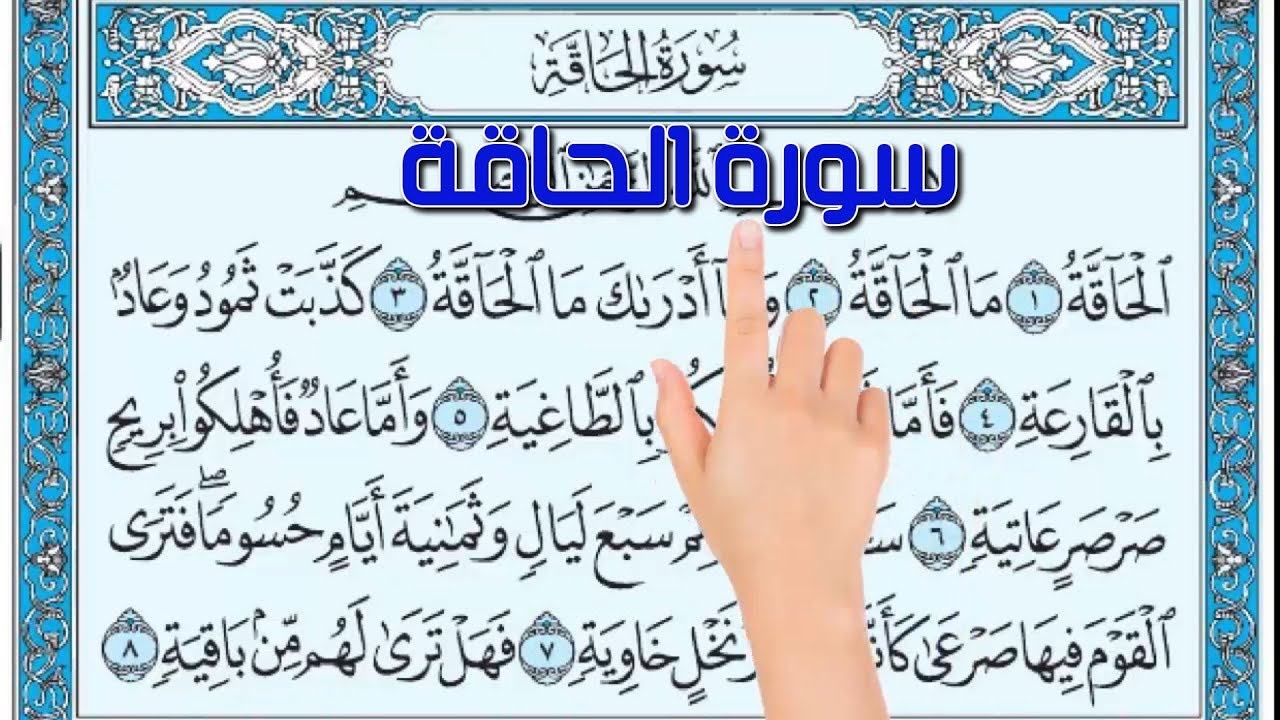 سُورَةُ الحَاقَّةِ
سورة الحاقة
ٱلۡحَآقَّةُ ١ مَا ٱلۡحَآقَّةُ ٢ أَدۡرَىٰكَ مَا ٱلۡحَآقَّةُ ٣ كَذَّبَتۡ ثَمُودُ وَعَادُۢ
بِٱلۡقَارِعَةِ ٤ فَأَمَّا بِٱلطَّاغِيَةِ ٥ وَأَمَّا عَادٞ فَأُهۡلِكُواْ بِرِيحٖ
صَرۡصَرٍ عَاتِيَةٖ ٦ سَبۡعَ لَيَالٖ وَثَمَٰنِيَةَ أَيَّامٍ حُسُومٗاۖ فَتَرَى
ٱلۡقَوۡمَ فِيهَا صَرۡعَىٰ نَخۡلٍ خَاوِيَةٖ ٧ فَهَلۡ تَرَىٰ لَهُم مِّنۢ بَاقِيَةٖ ٨